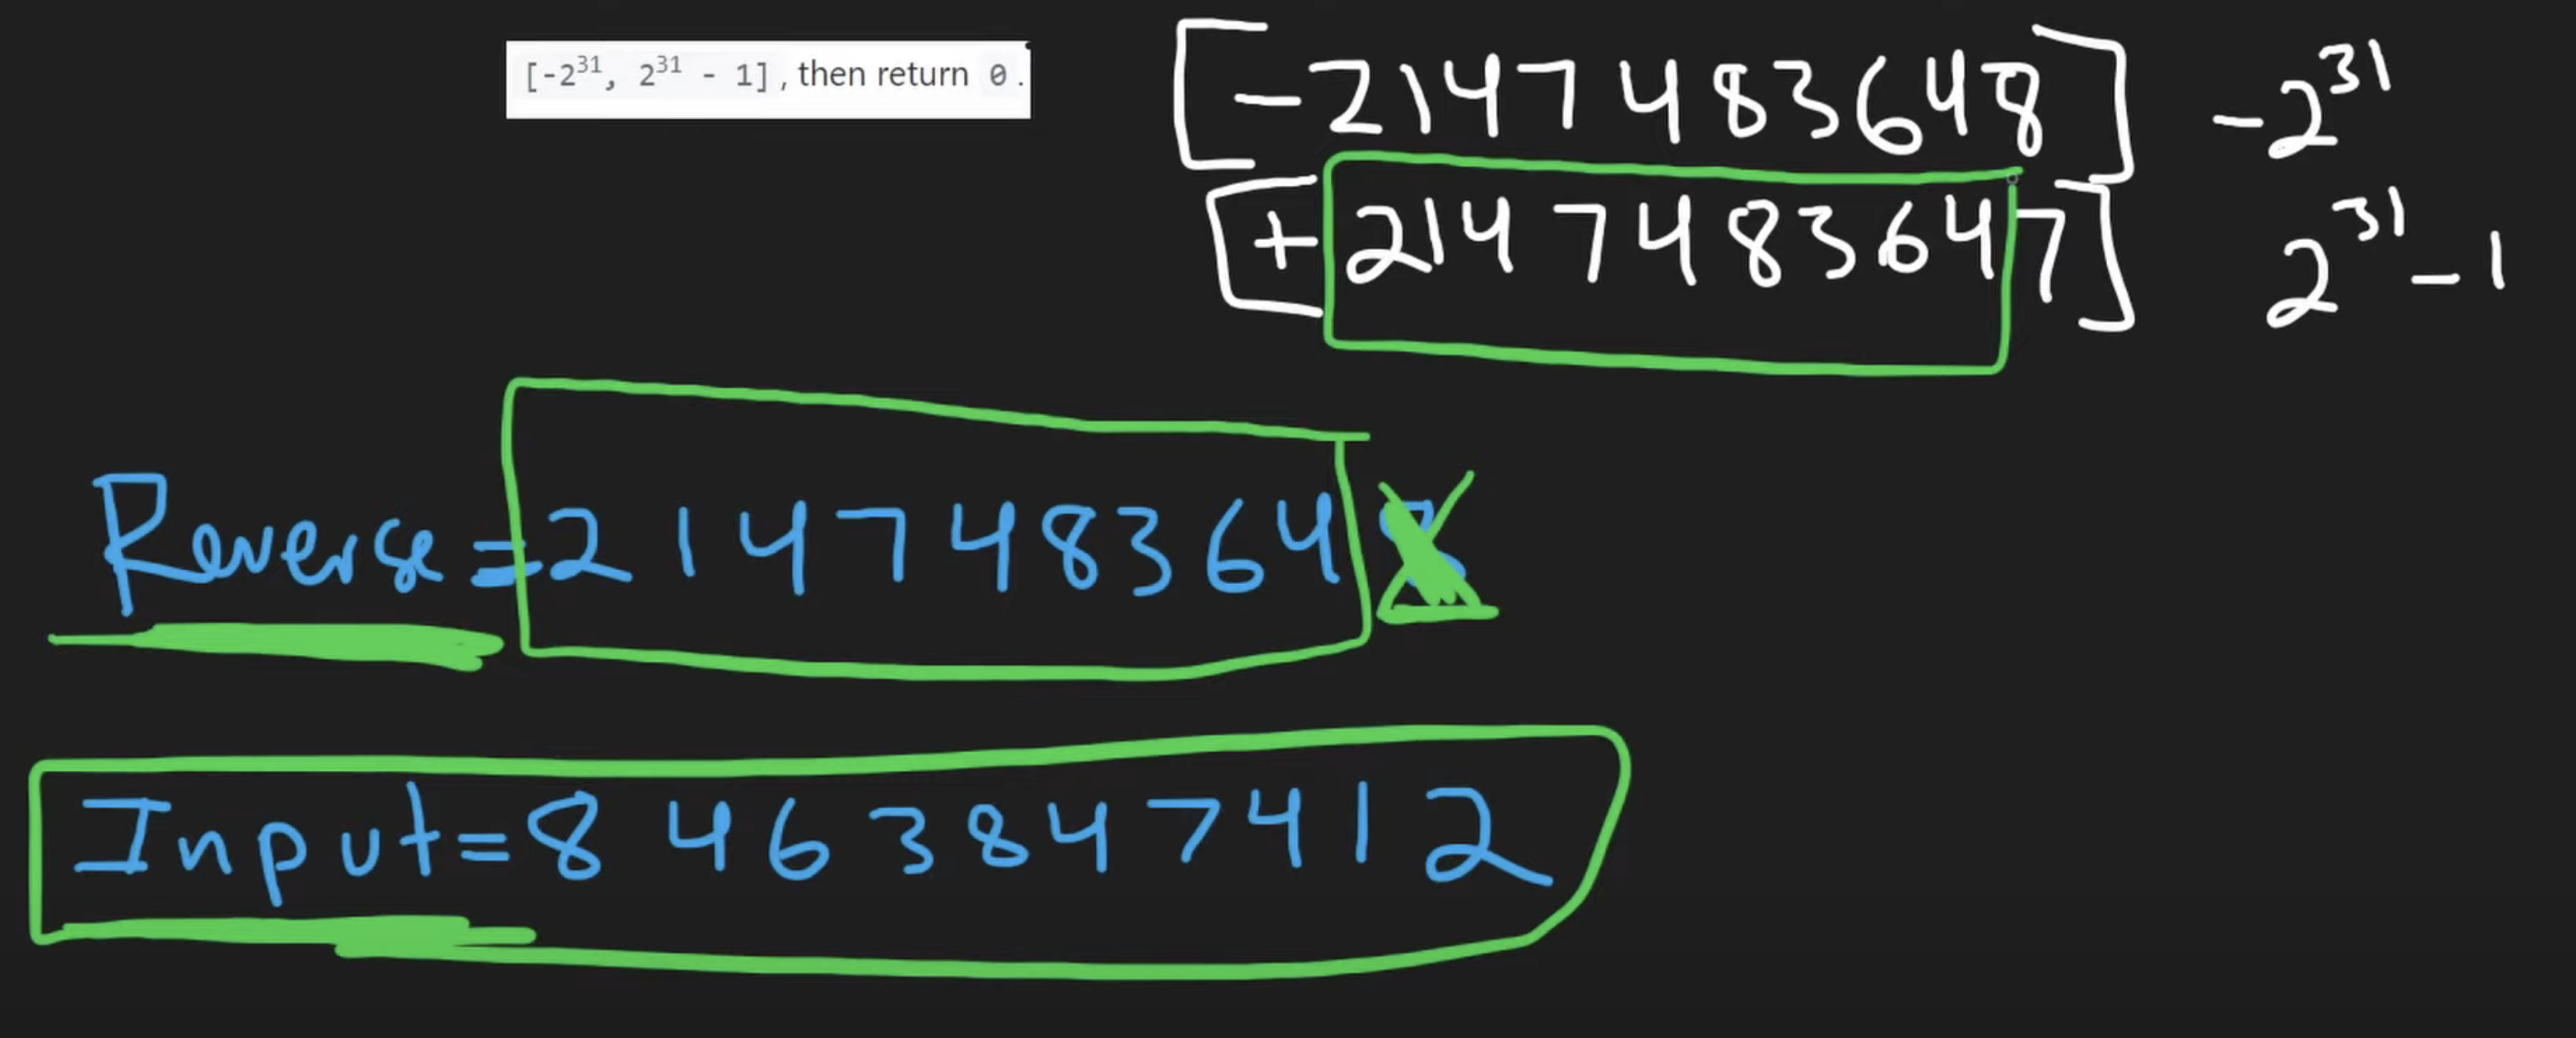 [-2³¹, 2³¹ - 1], then return 0.
[-2147483648] -2³¹
[+2147483647] 2³¹-1
Reverse=214748364
Input=8463847412